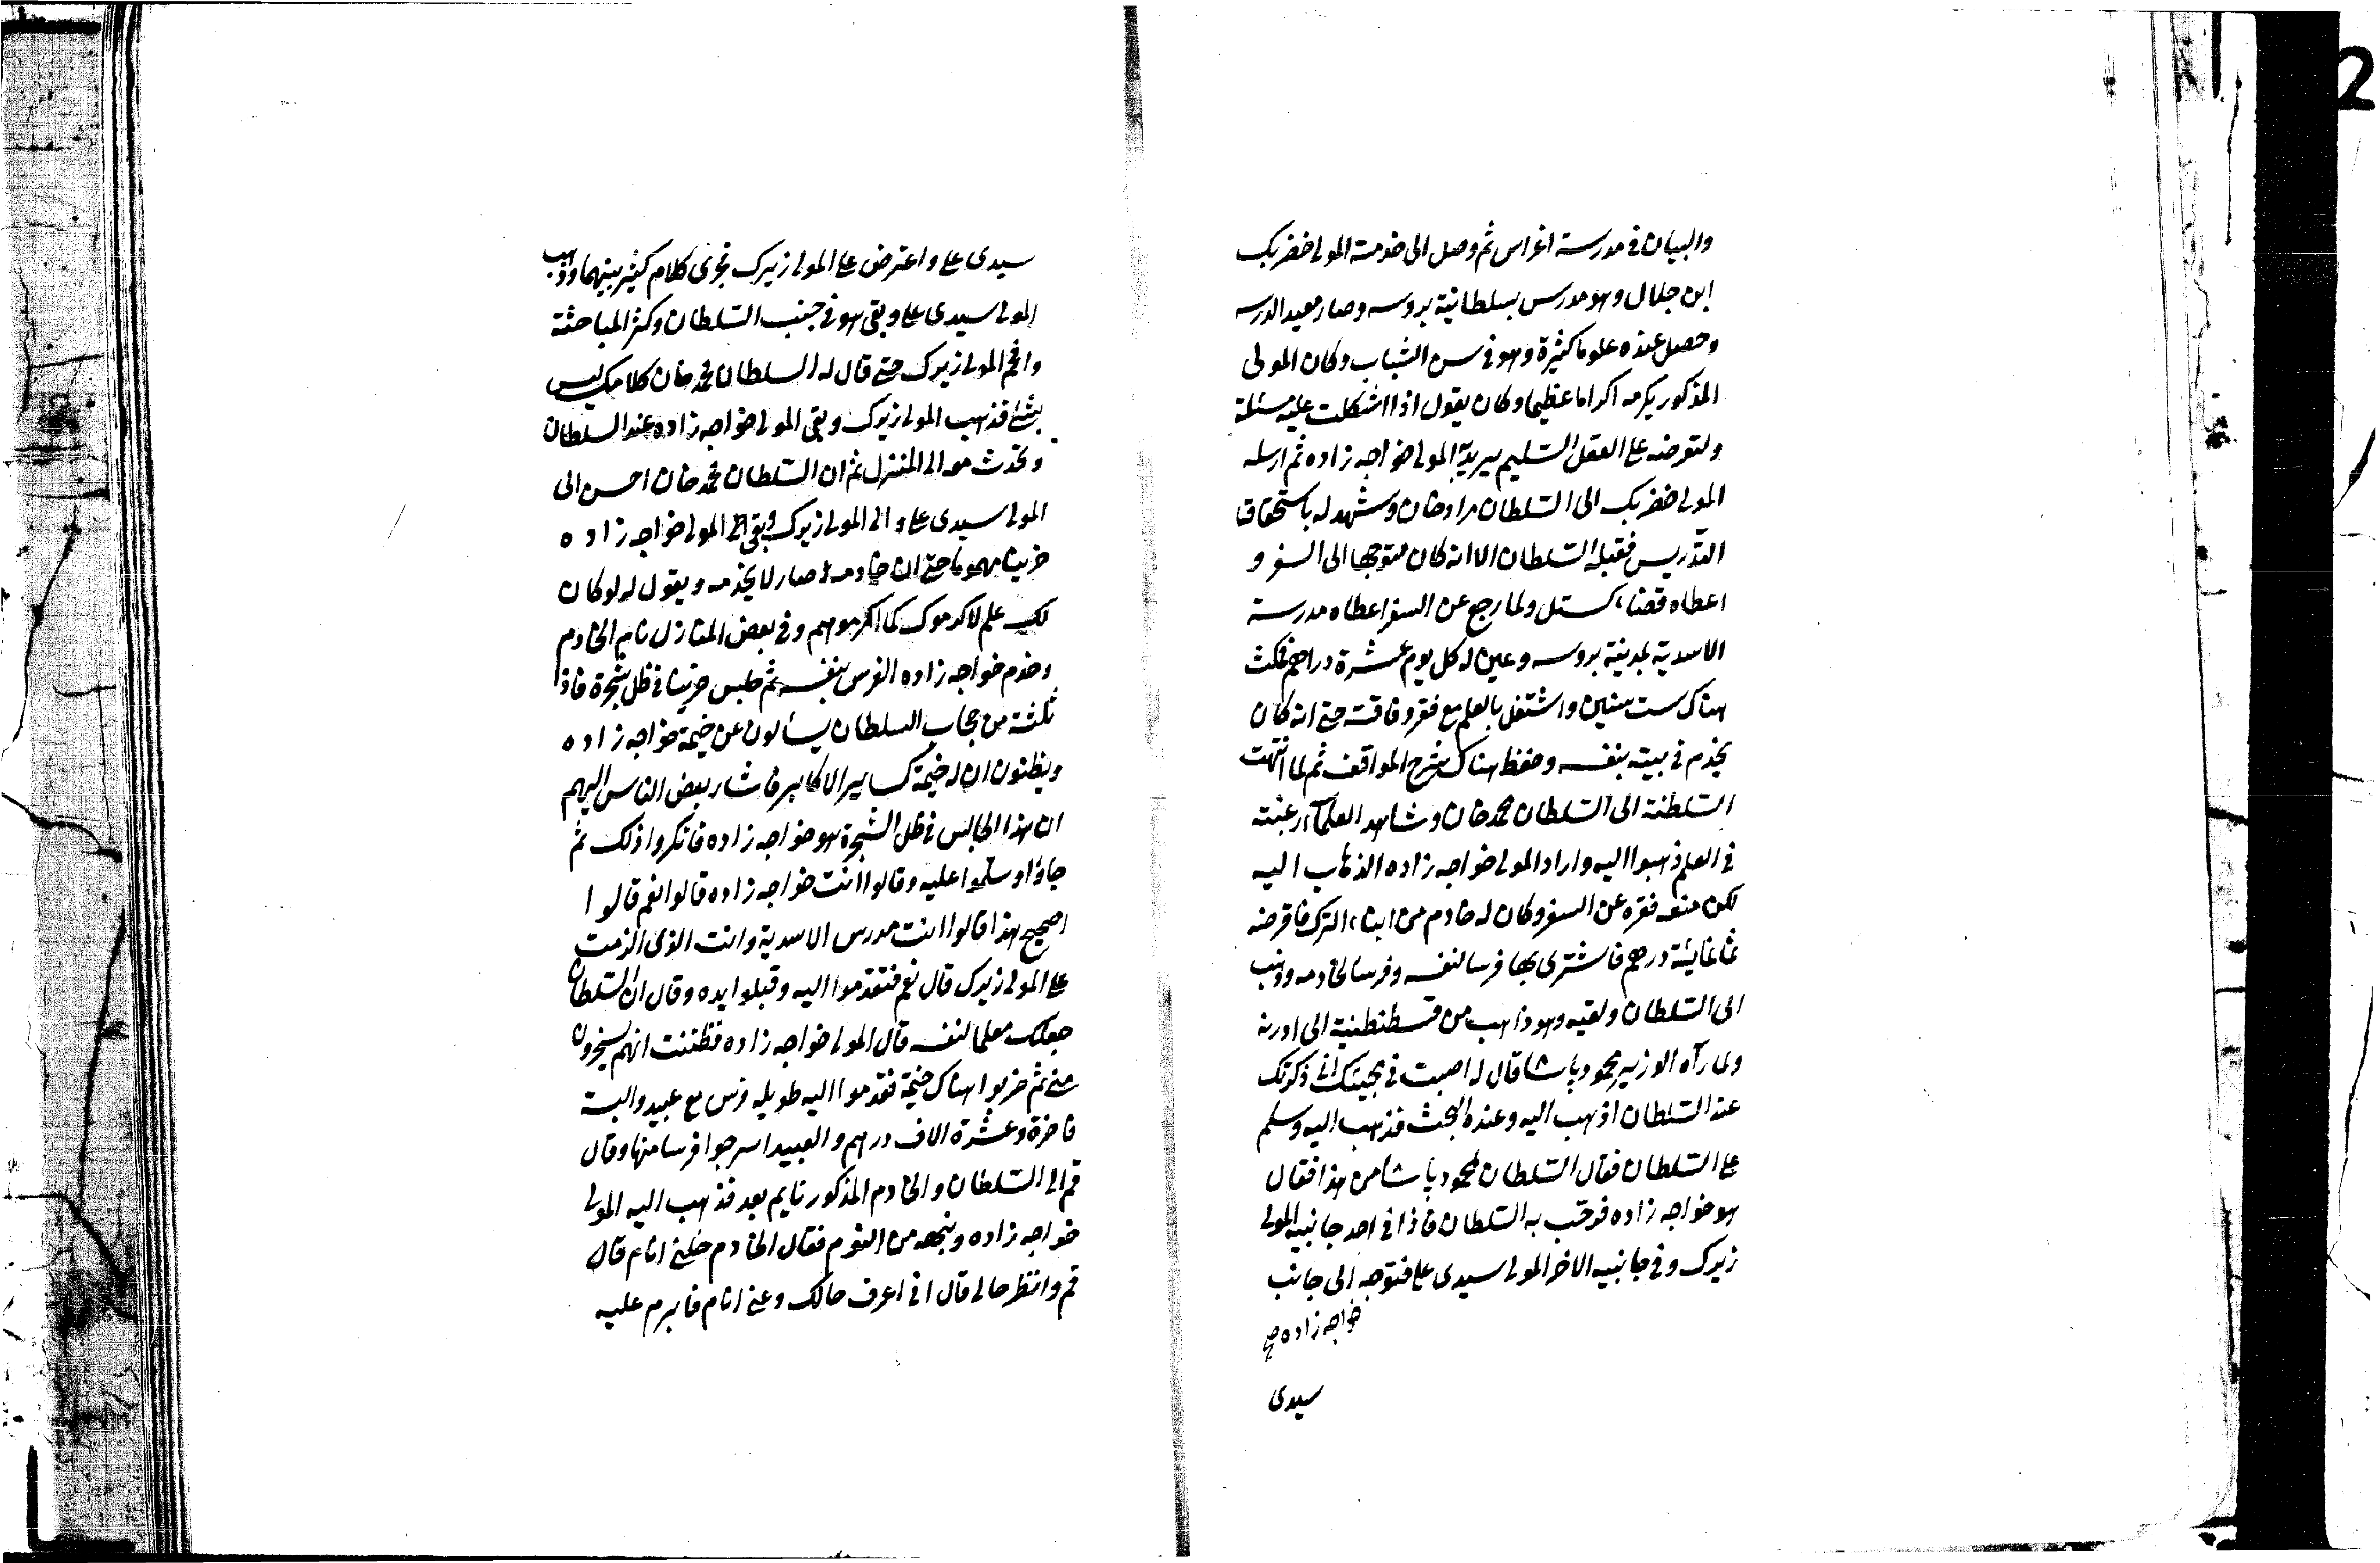 والبيان في مدرسة اغراس ثم وصل الى خدمة المولى خضر بك
ابن جلال وهو مدرس بسلطانية بروسه وصار معيد الدرسه
وحصل عنده علوما كثيرة وهو في سن الشباب وكان المولى
المذكور يكرمه اكراما عظيما وكان يقول اذا اشكلت عليه مسئلة
ولتعرضه على العقل السليم يريد به المولى خواجه زاده ثم ارسله
المولى خضر بك الى السلطان مراد خان وشهد له باستحقاق
التدريس فقبله السلطان الا انه كان متوجها الى السفر و
اعطاه قضاء كستل ولما رجع عن السفر اعطاه مدرسة
الاسدية بمدينة بروسه وعين له كل يوم عشرة دراهم فمكث
هناك ست سنين واشتغل بالعلم مع فقر وفاقة حتى انه كان
يخدم في بيته بنفسه وحفظ هناك شرح المواقف ثم لما انتهت
السلطنة الى السلطان محمد خان وشاهد العلماء رغبته
في العلم ذهبوا اليه واراد المولى خواجه زاده الذهاب اليه
لكن منعه فقره عن السفر وكان له خادم من ابناء الترك فاقرضه
ثمانمائة درهم فاشترى بها فرسا لنفسه وفرسا لخادمه وذهب
الى السلطان ولقيه وهو ذاهب من قسطنطنية الى ادرنه
ولما رآه الوزير محمود پاشا قال له اصبت في مجيئك انى ذكرتك
عند السلطان اذهب اليه وعنده البحث فذهب اليه وسلم
على السلطان فقال السلطان لمحمود پاشا من هذا فقال
هو خواجه زاده فرحب به السلطان فاذا في احد جانبيه المولى
زيرك وفي جانبيه الاخر المولى سيدى على فتوجه الى جانب
خواجه زاده صح
سيدى
سيدى على واعترض على المولى زيرك فجرى كلام كثير بينهما وذهب
المولى سيدى على وبقى هو في جنب السلطان وكثر المباحثة
وافحم المولى زيرك حتى قال له السلطان محمد خان كلامك ليس
بشئ فذهب المولى زيرك وبقى المولى خواجه زاده عند السلطان
وتحدث معه الى المنزل ثم ان السلطان محمد خان احسن الى
المولى سيدى على والى المولى زيرك وبقى المولى خواجه زاده
حزينا مهموما حتى ان خادمه صار لا يخدمه ويقول له لو كان
لك علم لاكرموك كما اكرموهم وفي بعض المنازل نام الخادم
وخدم خواجه زاده الفرس بنفسه ثم جلس حزينا في ظل شجرة فاذا
ثلثة من حجاب السلطان يسألون عن خيمة خواجه زاده
ويظنون ان له خيمة كساير الاكابر فاشار بعض الناس اليهم
ان هذا الجالس في ظل الشجرة هو خواجه زاده فانكروا ذلك ثم
جاؤا وسلموا عليه وقالوا انت خواجه زاده قالوا نعم قالوا
اصحيح هذا قالوا انت مدرس الاسدية وانت الذى الزمت
على المولى زيرك قال نعم فتقدموا اليه وقبلوا يده وقال ان السلطان
جعلك معلما لنفسه قال المولى خواجه زاده فظننت انهم يسخرون
منى ثم ضربوا هناك خيمة فقدموا اليه طويله فرس مع عبيد والبسة
فاخرة وعشرة الاف درهم والعبيد اسرجوا فرسا منها وقال
قم الى السلطان والخادم المذكور نايم بعد فذهب اليه المولى
خواجه زاده ونبهه من النوم فقال الخادم خلنى انام قال
قم وانظر حالى قال انى اعرف حالك دعنى انام فابرم عليه